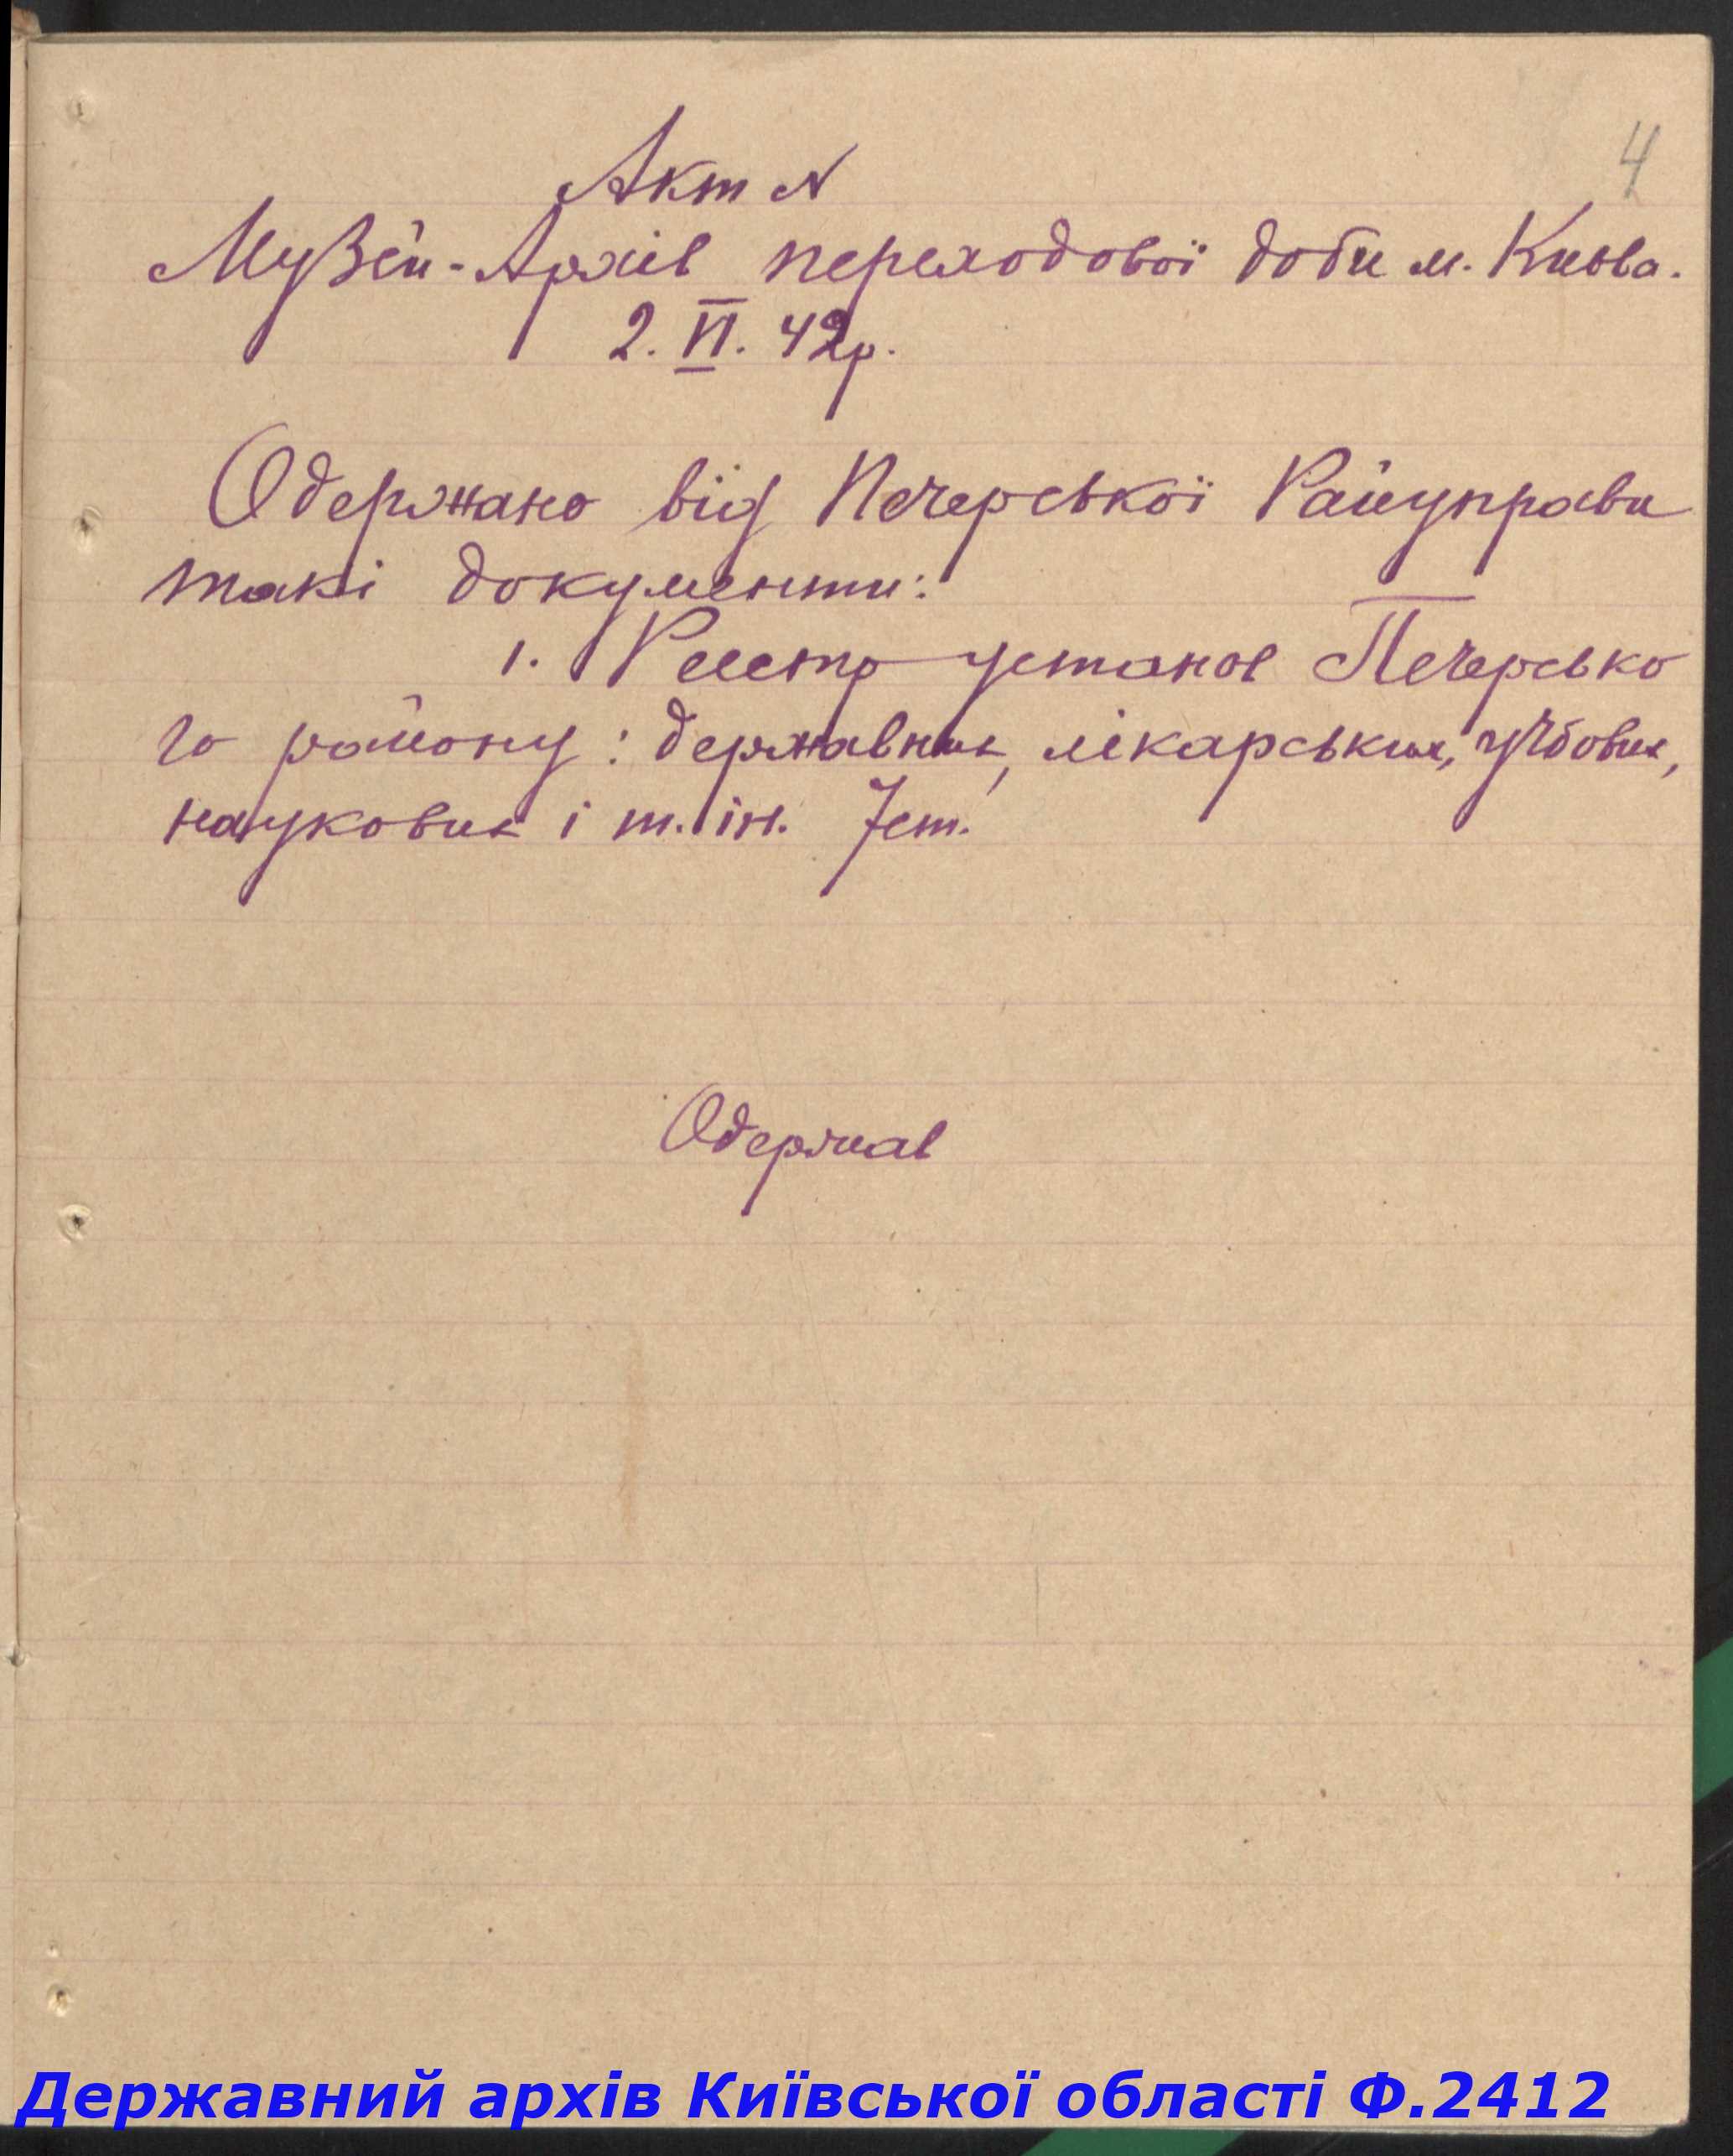 4
Акт №
Музей-Архів переходової доби м. Києва.
2. VI. 42р.
Одержано від Печерської Райуправи
такі документи:
1. Реєстр установ Печерсько
го району: державних, лікарських, учбових,
наукових і т. ін. 7 ст.
Одержав
Державний архів Київської області Ф.2412